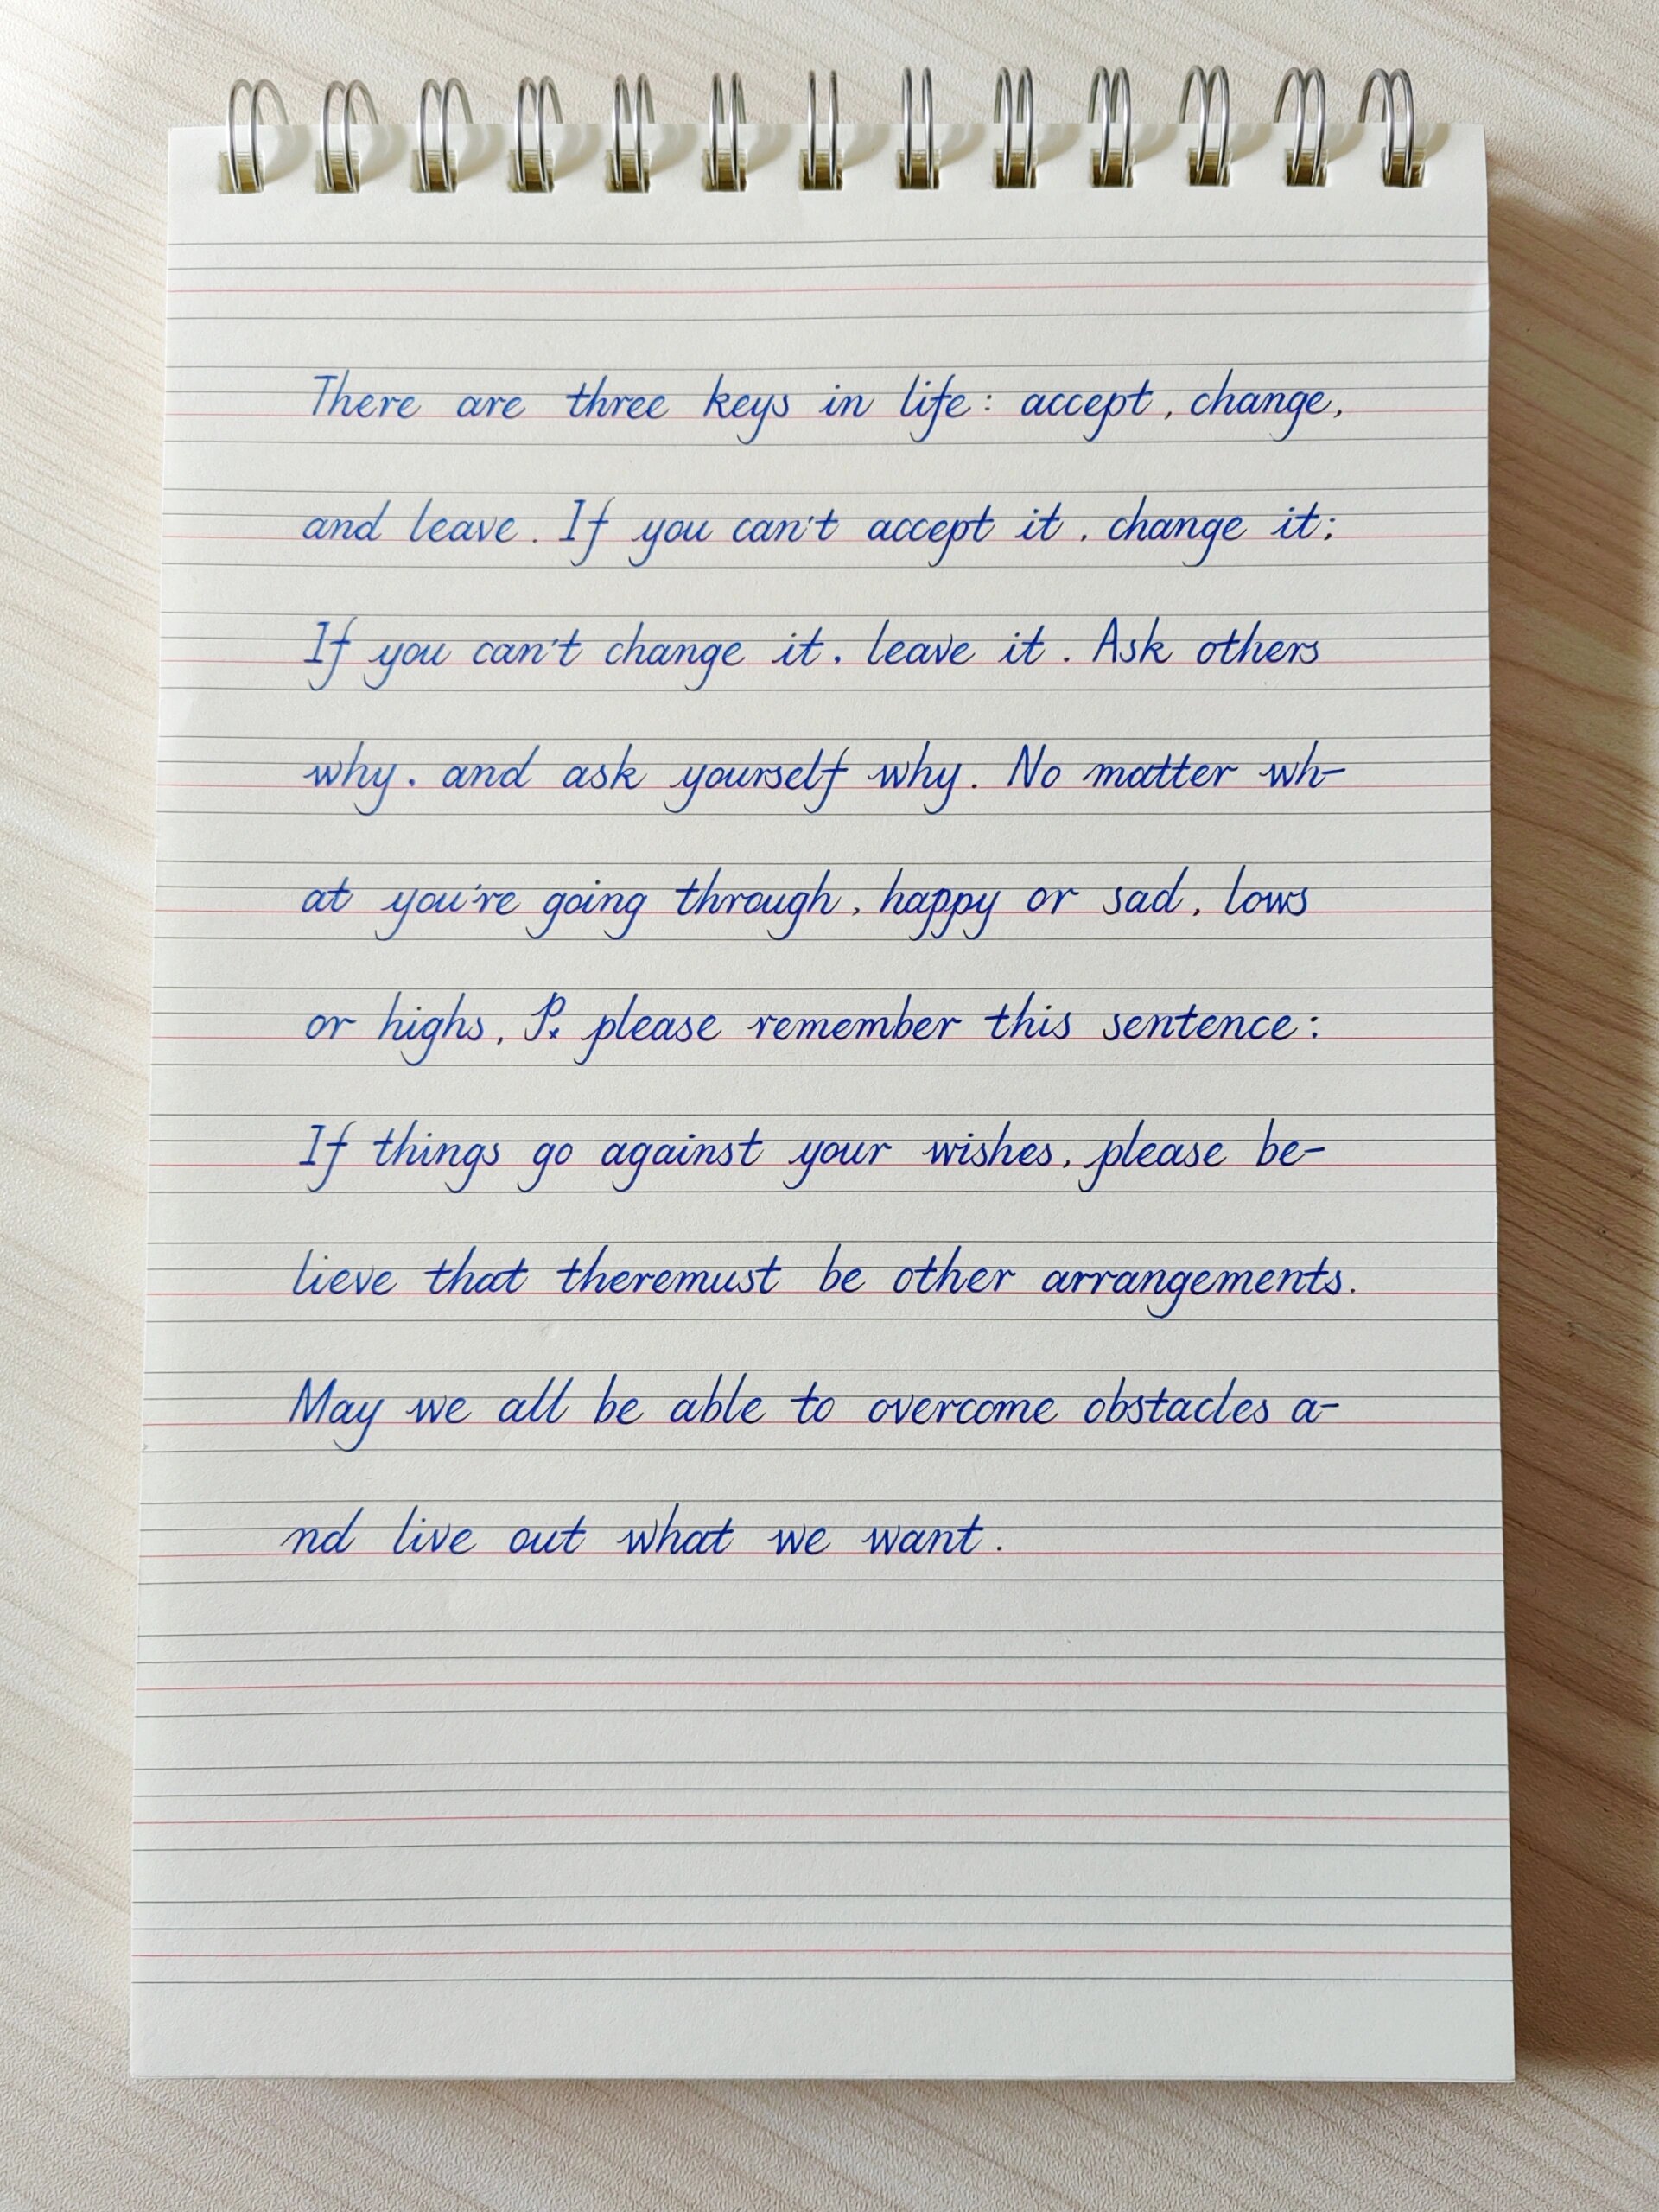 There are three keys in life: accept, change,
and leave. If you can't accept it, change it;
If you can't change it, leave it. Ask others
why, and ask yourself why. No matter wh-
at you're going through, happy or sad, lows
or highs, P. please remember this sentence:
If things go against your wishes, please be-
lieve that theremust be other arrangements.
May we all be able to overcome obstacles a-
nd live out what we want.